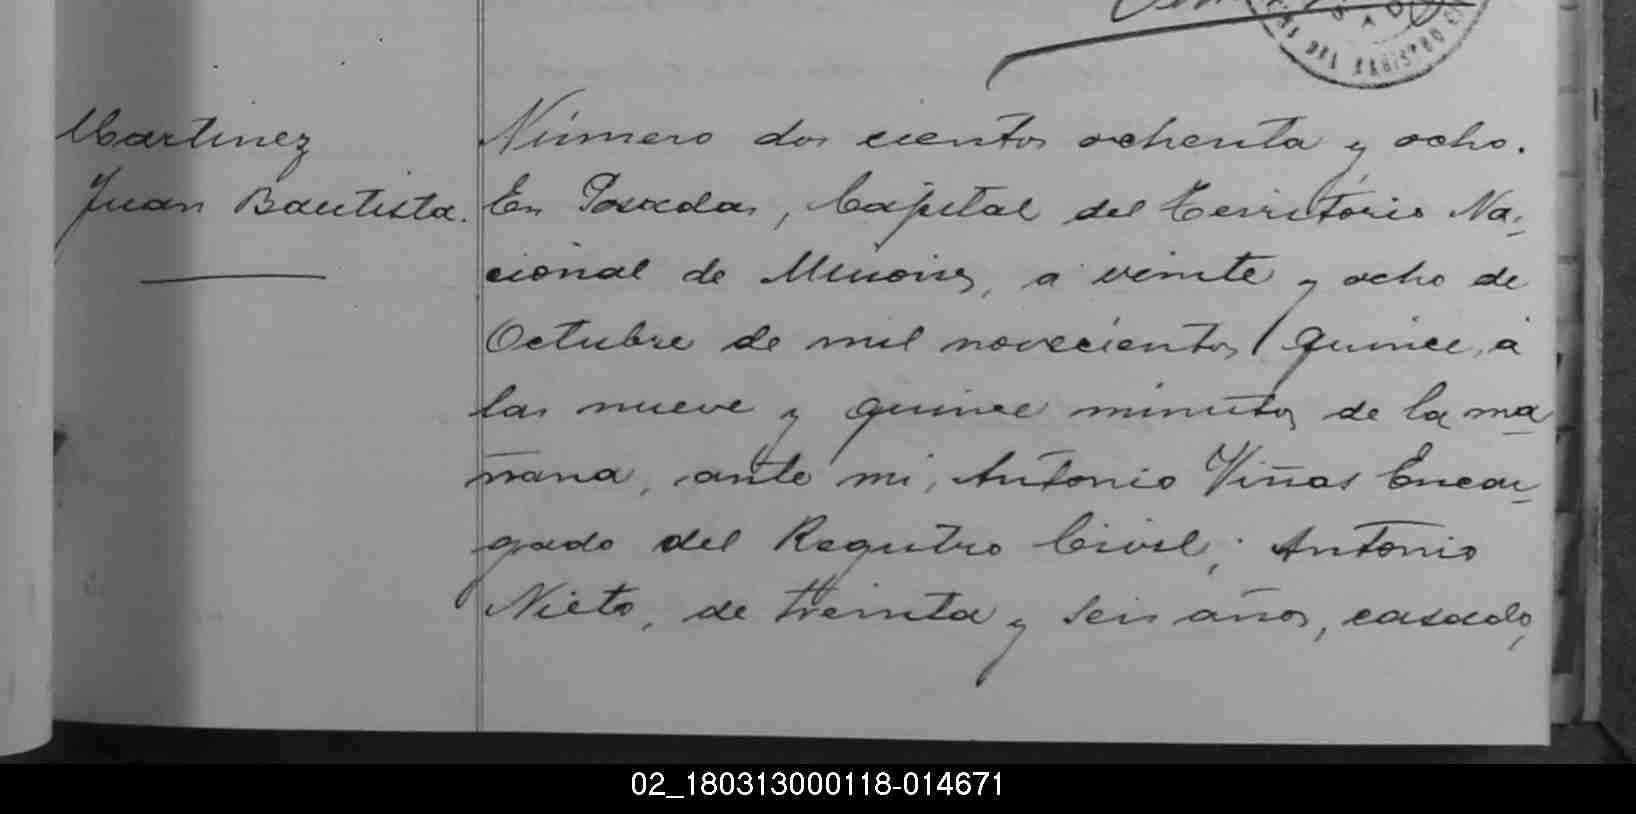 DEL REGISTRO
Martinez
Juan Bautista.
Número dos cientos ochenta y ocho.
En Posadas, Capital del Territorio Na-
cional de Misiones, a veinte y ocho de
Octubre de mil novecientos quince, a
las nueve y quince minutos de la ma
ñana, ante mi, Antonio Viñas Encar-
gado del Registro Civil; Antonio
Nieto, de treinta y seis años, casado,
02_180313000118-014671